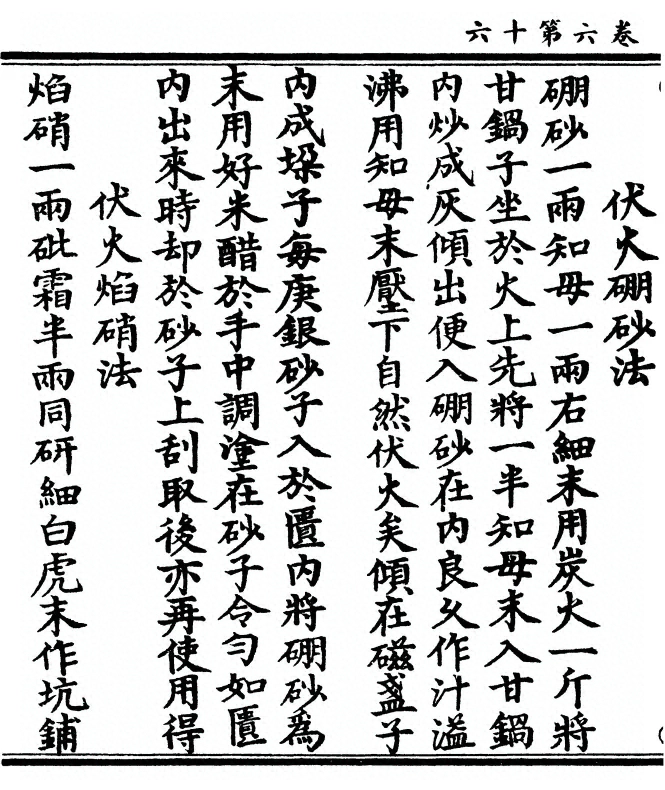 卷六第十六
伏火硼砂法
硼砂一兩知母一兩右細末用炭火一斤將
甘鍋子坐於火上先將一半知母末入甘鍋
內炒成灰傾出便入硼砂在內良久作汁溢
沸用知母末壓下自然伏火矣傾在磁盞子
內成垜子每庚銀砂子入於匱內將硼砂為
末用好米醋於手中調塗在砂子令勻如匱
內出來時却於砂子上刮取後亦再使用得
伏火焰硝法
焰硝一兩砒霜半兩同研細白虎末作坑鋪